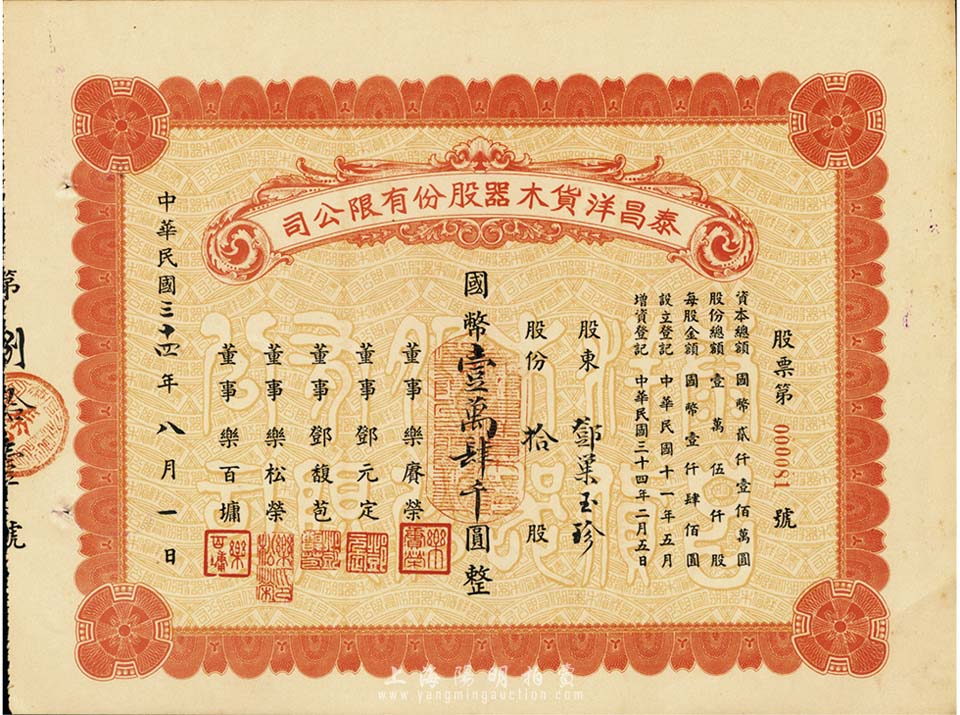 泰昌洋貨木器股份有限公司
股票第 000081 號
資本總額 國幣貳仟壹佰萬圓
股份總額 壹萬伍仟股
每股金額 國幣壹仟肆佰圓
設立登記 中華民國十一年五月
增資登記 中華民國三十四年二月五日
股東 鄧巢玉珍
股份 拾 股
國幣壹萬肆千圓整
董事 樂賡榮
董事 鄧元定
董事 鄧馥苞
董事 樂松榮
董事 樂百墉
中華民國三十四年八月一日
第捌 號
上海陽明拍賣
www.yangmingauction.com